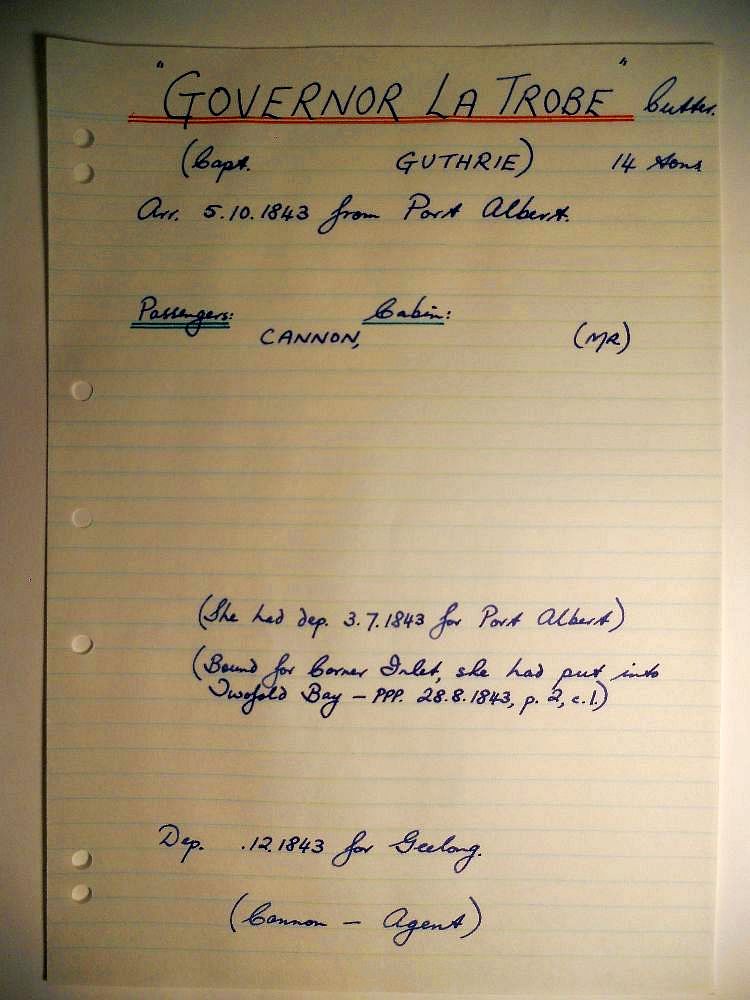 "GOVERNOR LA TROBE" Cutter.
(Capt. GUTHRIE) 14 tons
Arr. 5.10.1843 from Port Albert.
Passengers: Cabin:
CANNON, (MR)
(She had dep. 3.7.1843 for Port Albert)
(Bound for Corner Inlet, she had put into
Twofold Bay – PPP. 28.8.1843, p. 2, c.1.)
Dep. .12.1843 for Geelong.
(Cannon – Agent)